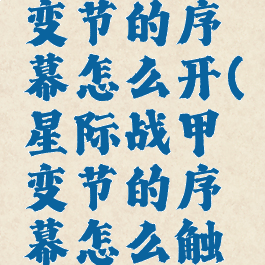 变节的序
幕怎么开(
星际战甲
变节的序
幕怎么触